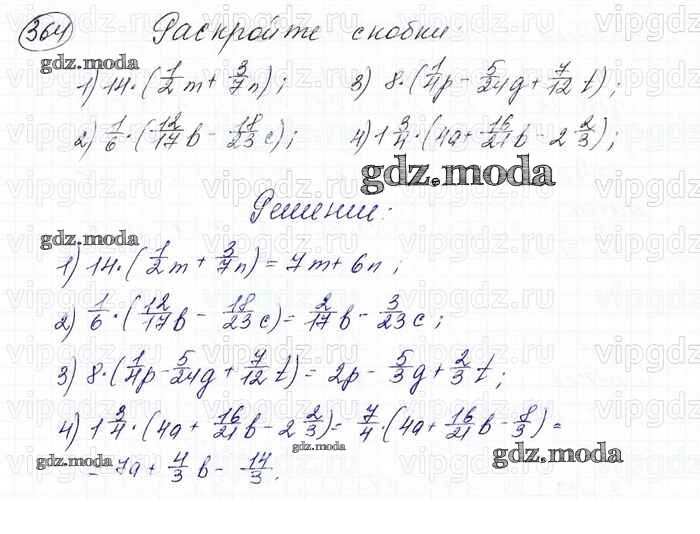 364 Раскройте скобки:
1) 14·(1/2 m + 3/7 n); 3) 8·(1/4 p - 5/24 g + 7/12 t);
2) 1/6·(12/17 b - 18/23 c); 4) 1 3/4·(4a + 16/21 b - 2 2/3);
gdz.moda
gdz.moda
Решение:
gdz.moda
1) 14·(1/2 m + 3/7 n) = 7m + 6n;
2) 1/6·(12/17 b - 18/23 c) = 2/17 b - 3/23 c;
3) 8·(1/4 p - 5/24 g + 7/12 t) = 2p - 5/3 g + 2/3 t;
4) 1 3/4·(4a + 16/21 b - 2 2/3) = 7/4·(4a + 16/21 b - 8/3) =
= 7a + 4/3 b - 14/3.
gdz.moda
gdz.moda
gdz.moda
vipgdz.ru